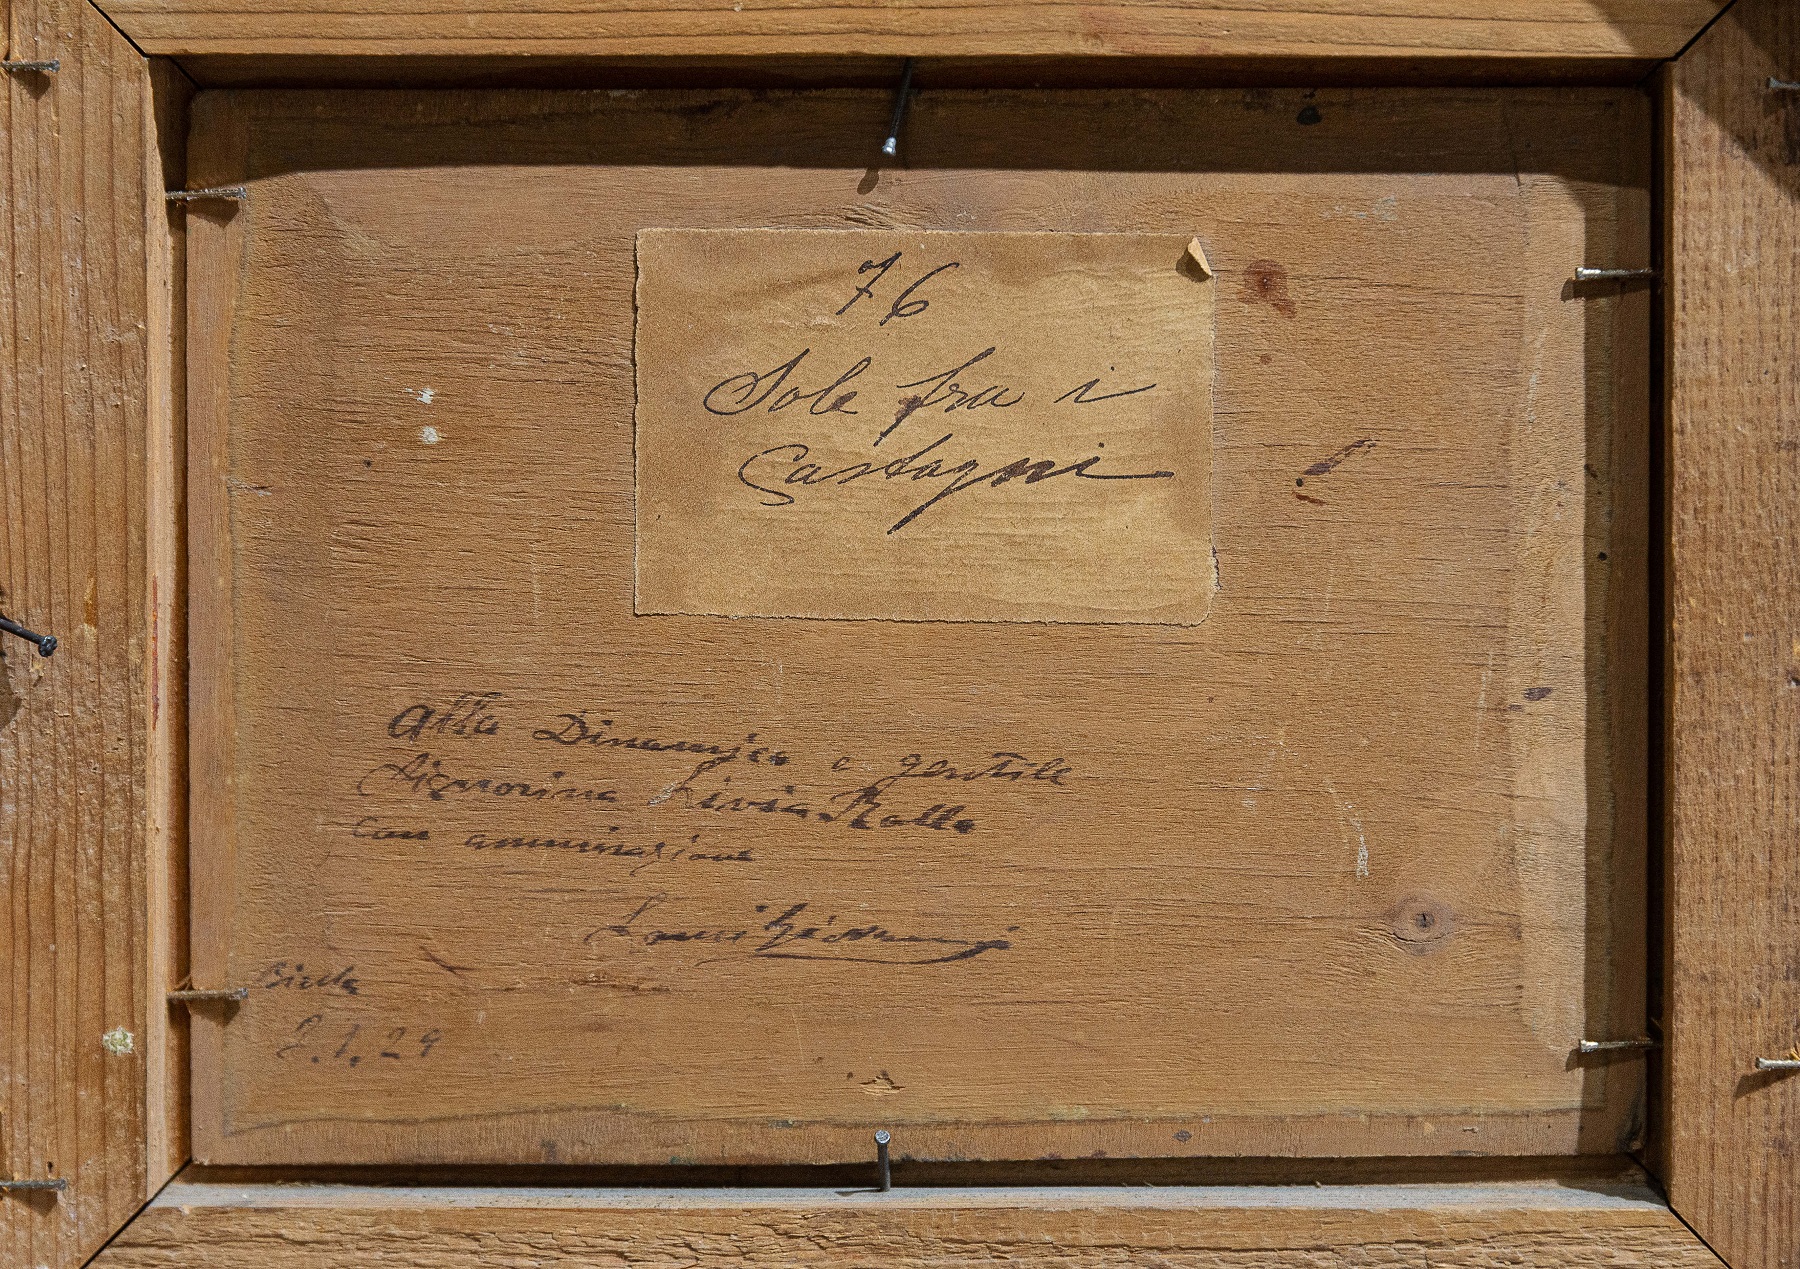 76
Sole fra i
Castagni
alla Dinamica e gentile
Signorina Livia
con ammirazione
Giovanni
Biella
2.1.29